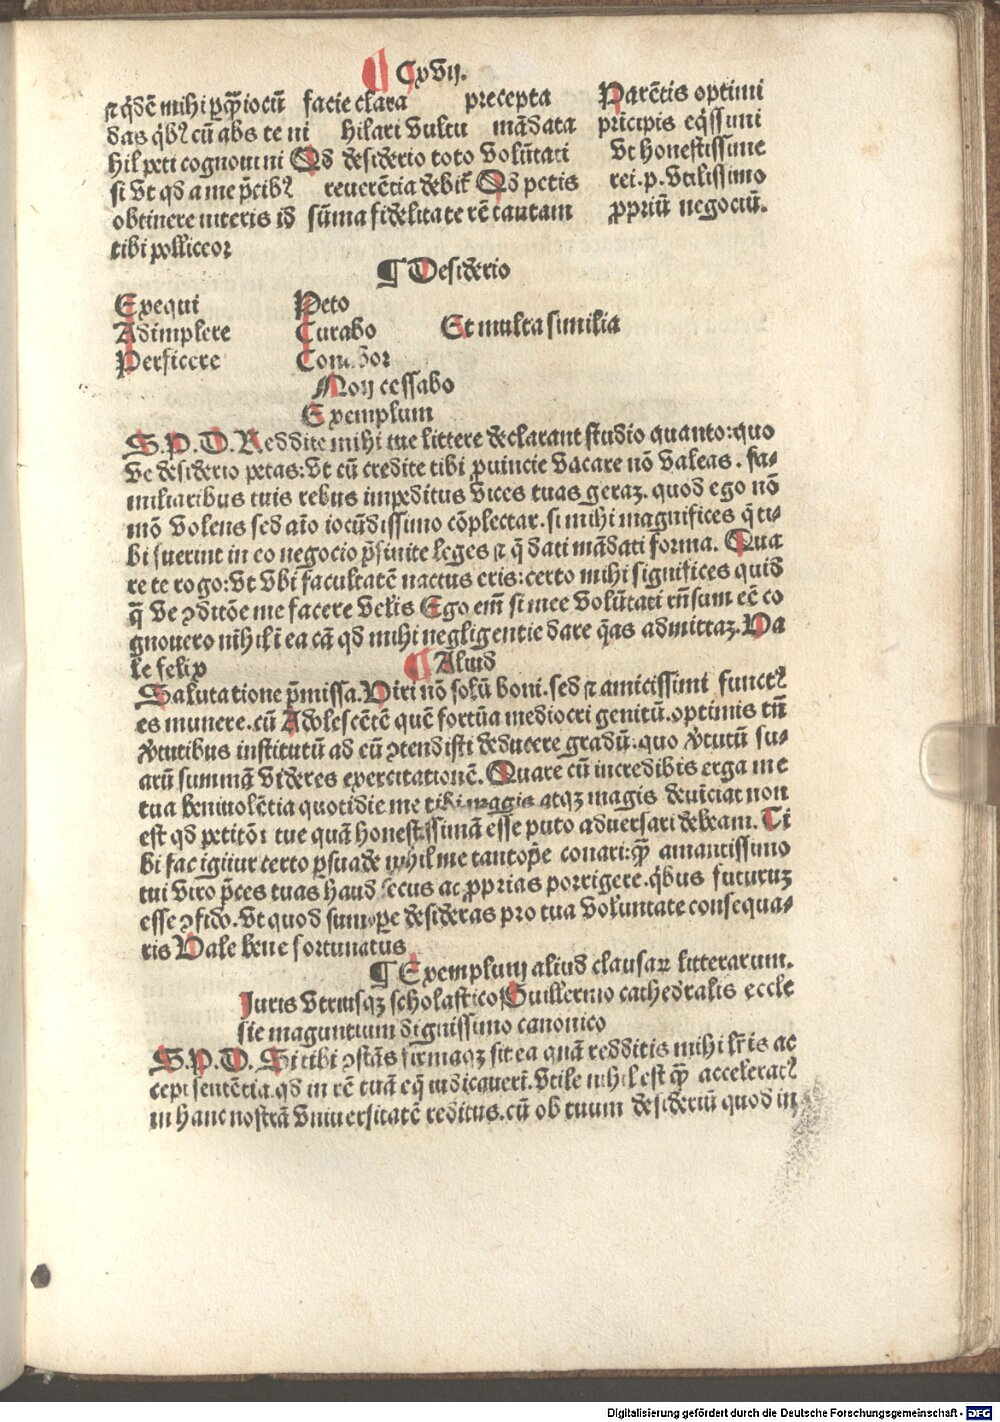 ¶ Cxvij.
⁊ q̇dē mihi ꝑq̄ȝ iocū facie clara precepta Parētis optimi
das q̇bꝰ cū abs te ni hilari vultu mādata pricipis eq̇ssimi
hil peti cognoui ni Qd desiderio toto volūtati vt honestissime
si vt qd a me p̄cibꝰ reuerētia debit̄ Qd petis rei.p.vtilissimo
obtinere niteris id sūma fidelitate rē tantam ꝓpriū negociū.
tibi polliceor
¶ Desiderio
Exequi Peto
Adimplere Curabo Et multa similia
Perficere
Non cessabo
Exemplum
S.P.D. Reddite mihi tue littere declarant studio quanto:quo
ve desiderio petas:vt cū credite tibi ꝓuincie vacare nō valeas. fa-
miliaribus tuis rebus impeditus vices tuas geraȝ. quod ego nō
mō volens sed aīo iocūdissimo cōplectar. si mihi magnifices q̄ ti-
bi fuerint in eo negocio p̄finite leges ⁊ q̄ dati mādati forma. Qua
re te rogo:vt vbi facultatē nactus eris:certo mihi significes quid
q̄ ve ↄditōe me facere velis Ego em̄ si mee volūtati rn̄sum eē co
gnouero nihil ī ea cā qd mihi negligentie dare q̄as admittaȝ. Va
le felix ¶ Aliud
Salutatione p̄missa. Viri nō solū boni. sed ⁊ amicissimi functꝰ
es munere. cū Adolescētē quē fortūa mediocri genitū. optimis tn̄
v̓tutibus institutū ad eū ↄtendisti deducere gradū. quo v̓tutū su-
arū summā videres exercitationē. Quare cū incredibis erga me
tua beniuolētia quotidie me tibi magis atqȝ magis deuīciat non
est qd petitōi tue quā honestissimā esse puto aduersari debeam. Ti
bi fac igitur certo ꝑsuade nihil me tantop̄e conari:q̄ȝ amantissimo
tui viro p̄ces tuas haud secus ac ꝓprias porrigere. q̇bus futuruȝ
esse ↄfido. vt quod sumope desideras pro tua voluntate consequa-
ris Vale bene fortunatus
¶ Exemplum aliud clausaꝝ litterarum.
Iuris vtriusqȝ scholastico Guillermo cathedralis eccle
sie maguntium dignissimo canonico
S.P.D. Si tibi ↄstās firmaqȝ sit ea quā redditis mihi lr̄is ac
cepi sentētia. qd in rē tuā eq̄ iudicauerī. vtile nihil est q̄ȝ acceleratꝰ
in hanc nostrā vniuersitatē reditus. cū ob tuum desideriū quod in
Digitalisierung gefördert durch die Deutsche Forschungsgemeinschaft - DFG